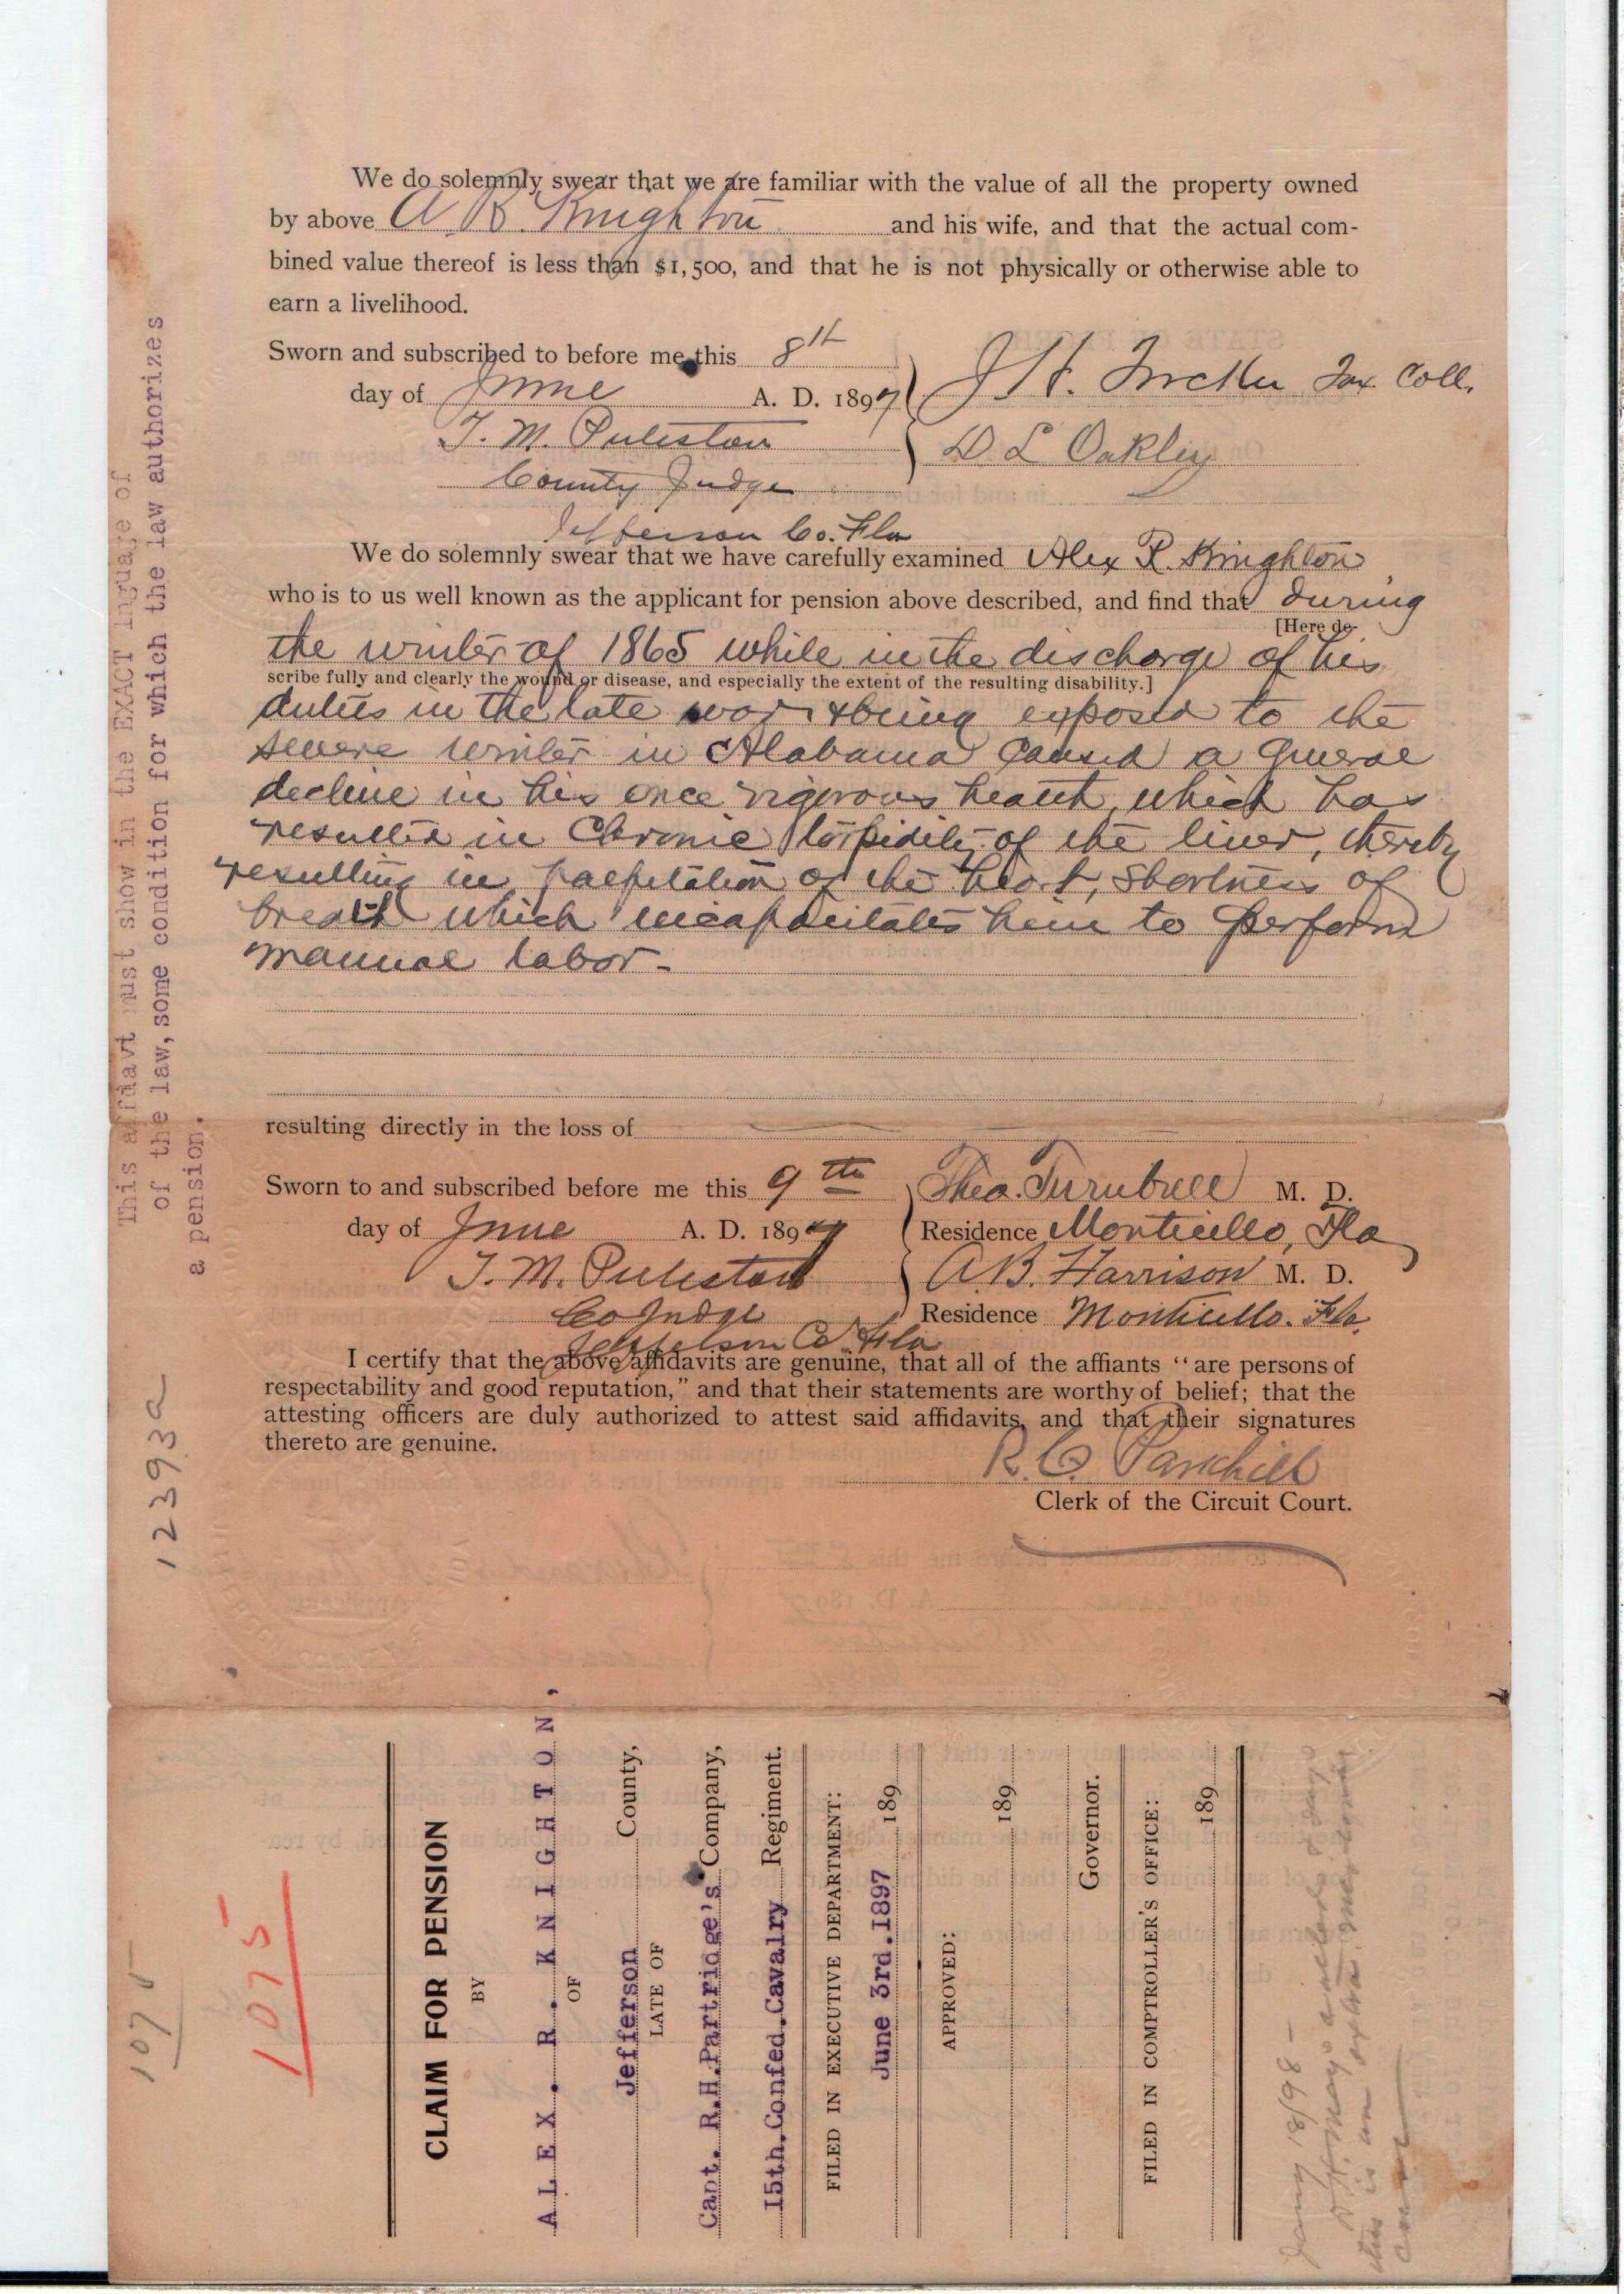 We do solemnly swear that we are familiar with the value of all the property owned
by above A R. Knighton and his wife, and that the actual com-
bined value thereof is less than $1,500, and that he is not physically or otherwise able to
earn a livelihood.
Sworn and subscribed to before me this 8th
day of June A. D. 1897 J H. Tax Coll.
T. M. Puleston D L Oakley
County Judge
Jefferson Co. Fla
We do solemnly swear that we have carefully examined Alex R. Knighton
who is to us well known as the applicant for pension above described, and find that during
[Here de-
the winter of 1865 while in the discharge of his
scribe fully and clearly the wound or disease, and especially the extent of the resulting disability.]
duties in the late war & being exposed to the
severe winter in Alabama caused a general
decline in his once vigorous health, which has
resulted in Chronic torpidity of the liver, thereby
resulting in palpitation of the heart, shortness of
breath which incapacitates him to perform
manual labor.
resulting directly in the loss of
Sworn to and subscribed before me this 9th Theo. Turnbull M. D.
day of June A. D. 1897 Residence Monticello, Fla
T. M. Puleston A. B. Harrison M. D.
Co Judge Residence Monticello. Fla.
Jefferson Co Fla
I certify that the above affidavits are genuine, that all of the affiants "are persons of
respectability and good reputation," and that their statements are worthy of belief; that the
attesting officers are duly authorized to attest said affidavits, and that their signatures
thereto are genuine.
R. C. Parkhill
Clerk of the Circuit Court.
This affdavt must show in the EXACT lnguage of
of the law, some condition for which the law authorizes
a pension.
12393a
1075
1075
CLAIM FOR PENSION
BY
ALEX. R. KNIGHTON,
OF
Jefferson County,
LATE OF
Capt. R.H.Partridge's Company,
15th.Confed.Cavalry Regiment.
FILED IN EXECUTIVE DEPARTMENT:
June 3rd.1897 189
APPROVED:
189
Governor.
FILED IN COMPTROLLER'S OFFICE:
189
18/98 -
this is an